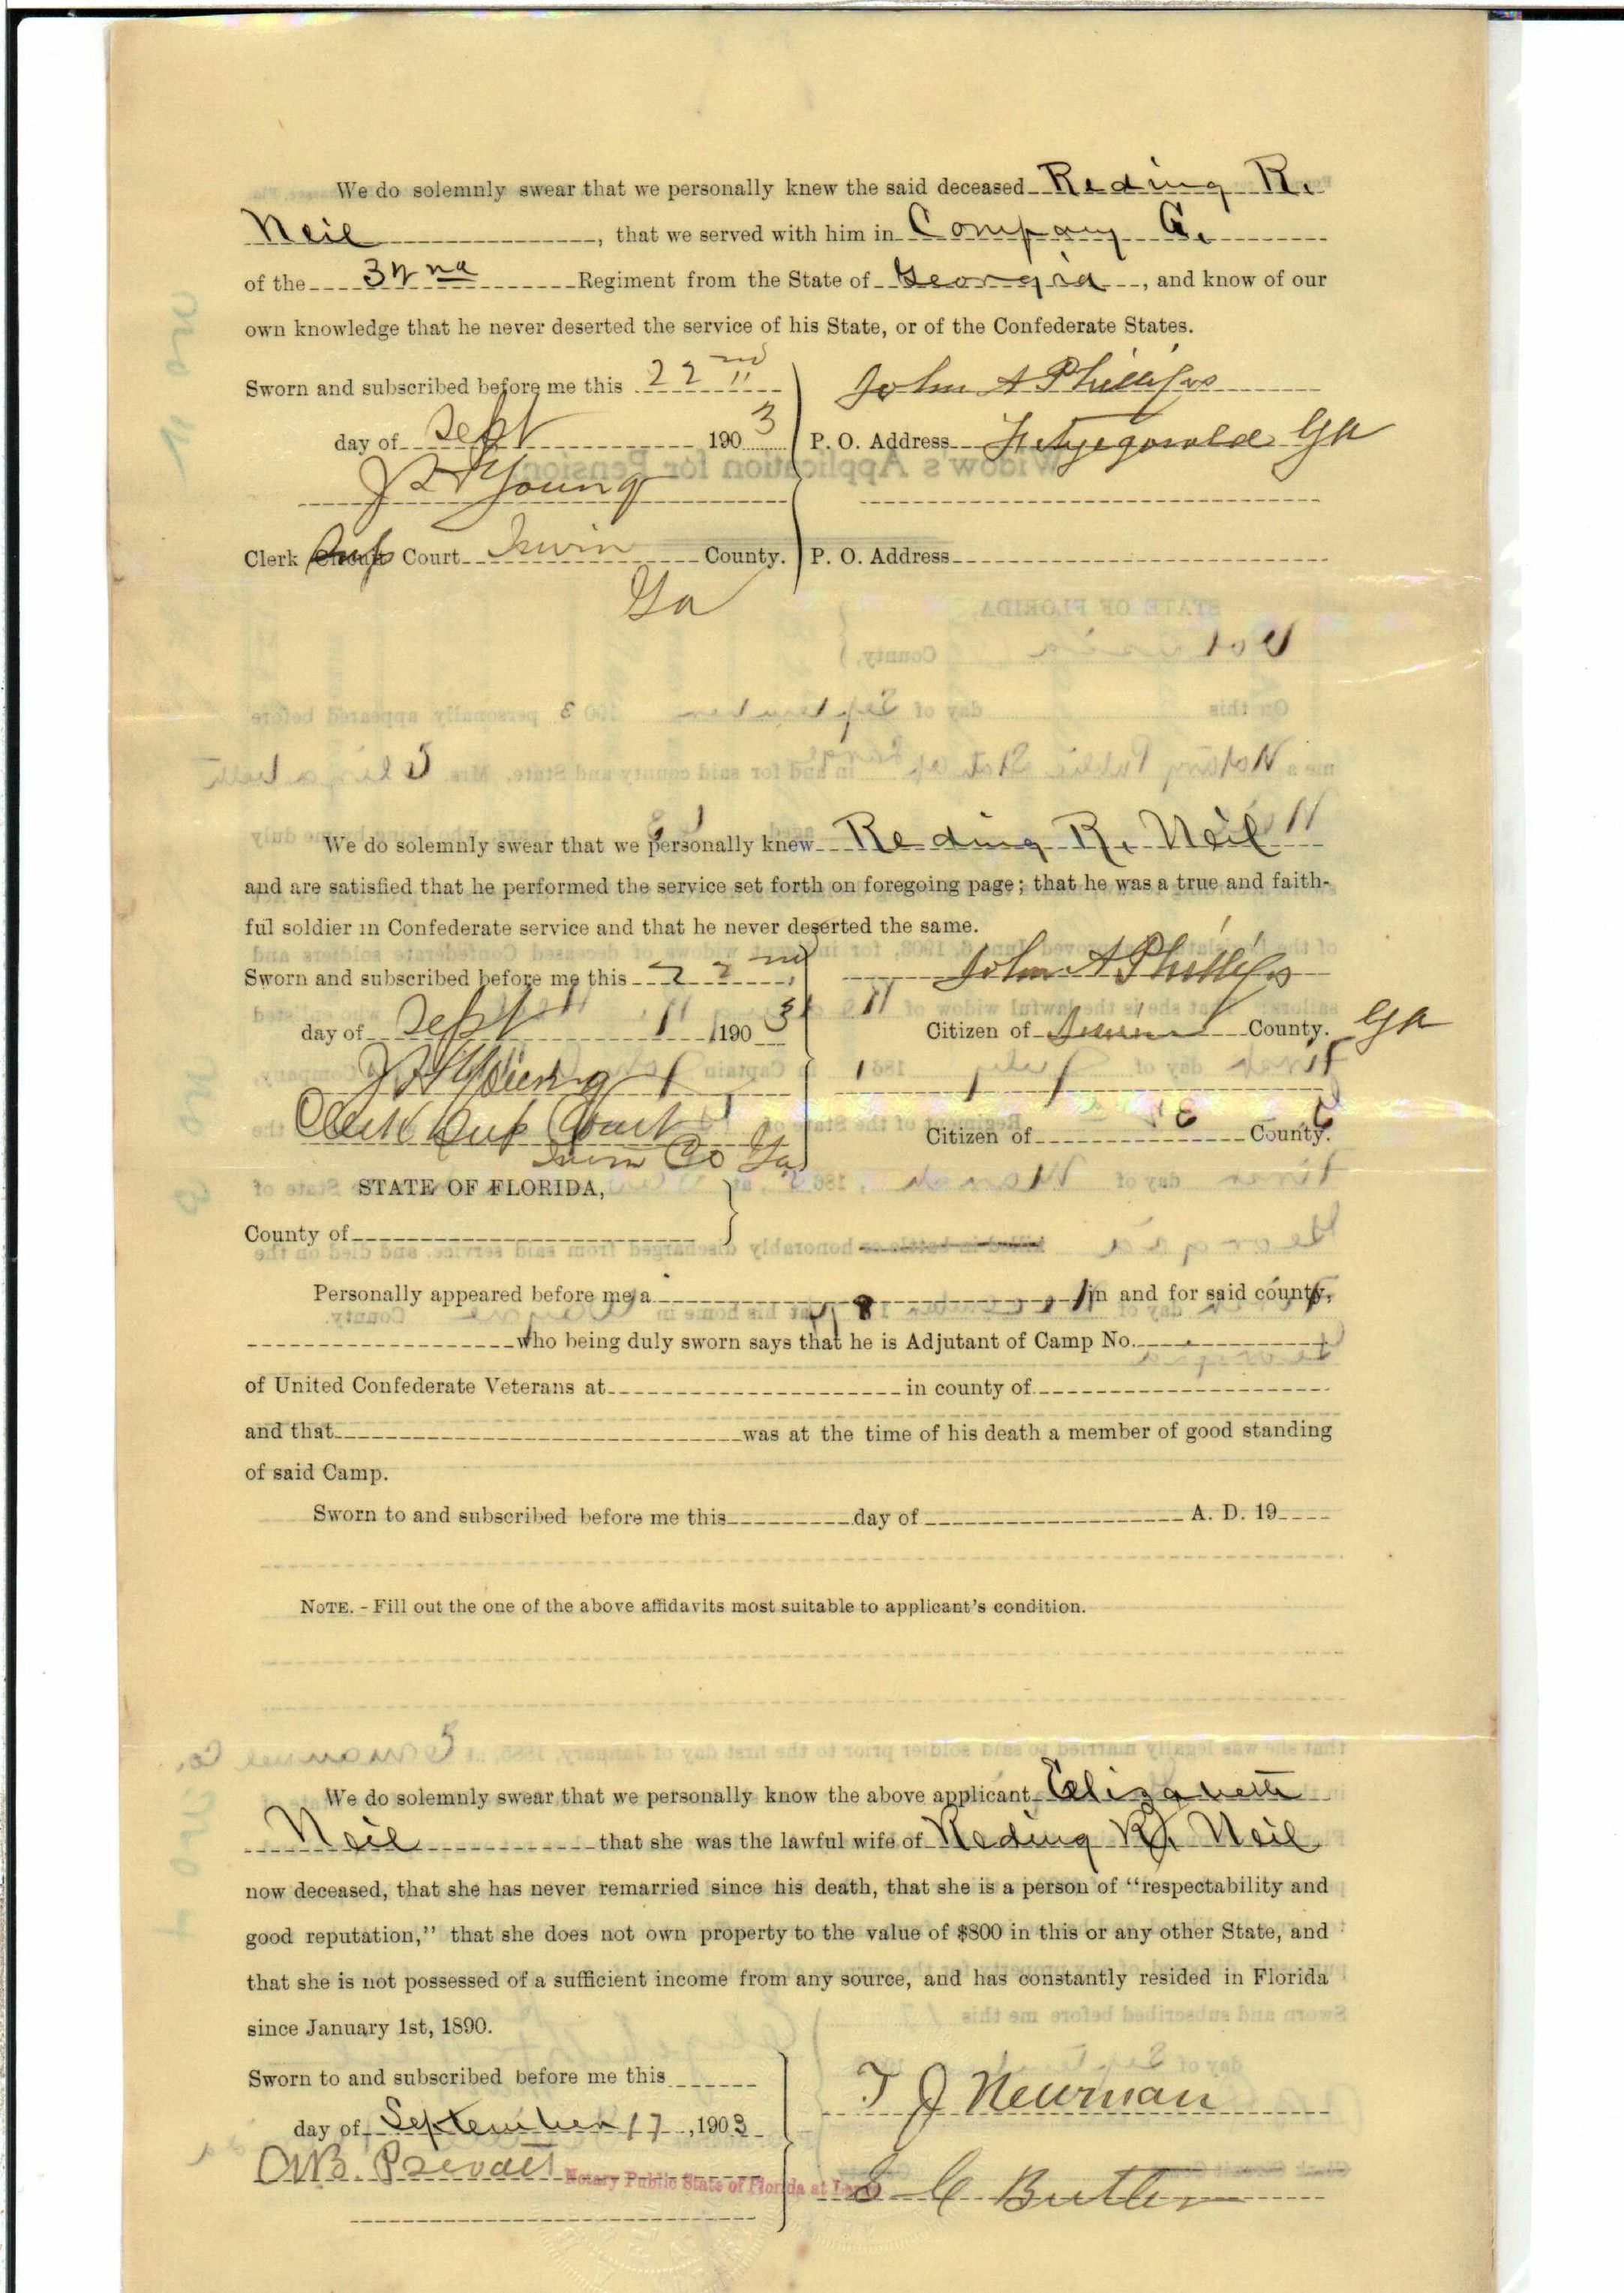 We do solemnly swear that we personally knew the said deceased Reding R.
Neil, that we served with him in Company G.
of the 32nd Regiment from the State of Georgia, and know of our
own knowledge that he never deserted the service of his State, or of the Confederate States.
Sworn and subscribed before me this 22nd John A Phillips
day of Sept 1903 P. O. Address Fitzgerald Ga
J Young
Clerk Sup Court Irwin County. P. O. Address
Ga
We do solemnly swear that we personally knew Reding R. Neil
and are satisfied that he performed the service set forth on foregoing page; that he was a true and faith-
ful soldier in Confederate service and that he never deserted the same.
Sworn and subscribed before me this 22nd John A Phillips
day of Sept 1903 Citizen of Irwin County. Ga
J Young
Clerk Sup Court Citizen of County.
Irwin Co Ga
STATE OF FLORIDA,
County of
Personally appeared before me, a in and for said county,
who being duly sworn says that he is Adjutant of Camp No.
of United Confederate Veterans at in county of
and that was at the time of his death a member of good standing
of said Camp.
Sworn to and subscribed before me this day of A. D. 19
NOTE. - Fill out the one of the above affidavits most suitable to applicant's condition.
We do solemnly swear that we personally know the above applicant Elizabeth
Neil that she was the lawful wife of Reding R. Neil
now deceased, that she has never remarried since his death, that she is a person of "respectability and
good reputation," that she does not own property to the value of $800 in this or any other State, and
that she is not possessed of a sufficient income from any source, and has constantly resided in Florida
since January 1st, 1890.
Sworn to and subscribed before me this T J Newman
day of September 17, 1903
Prevatt Notary Public State of Florida at Large E C Butler